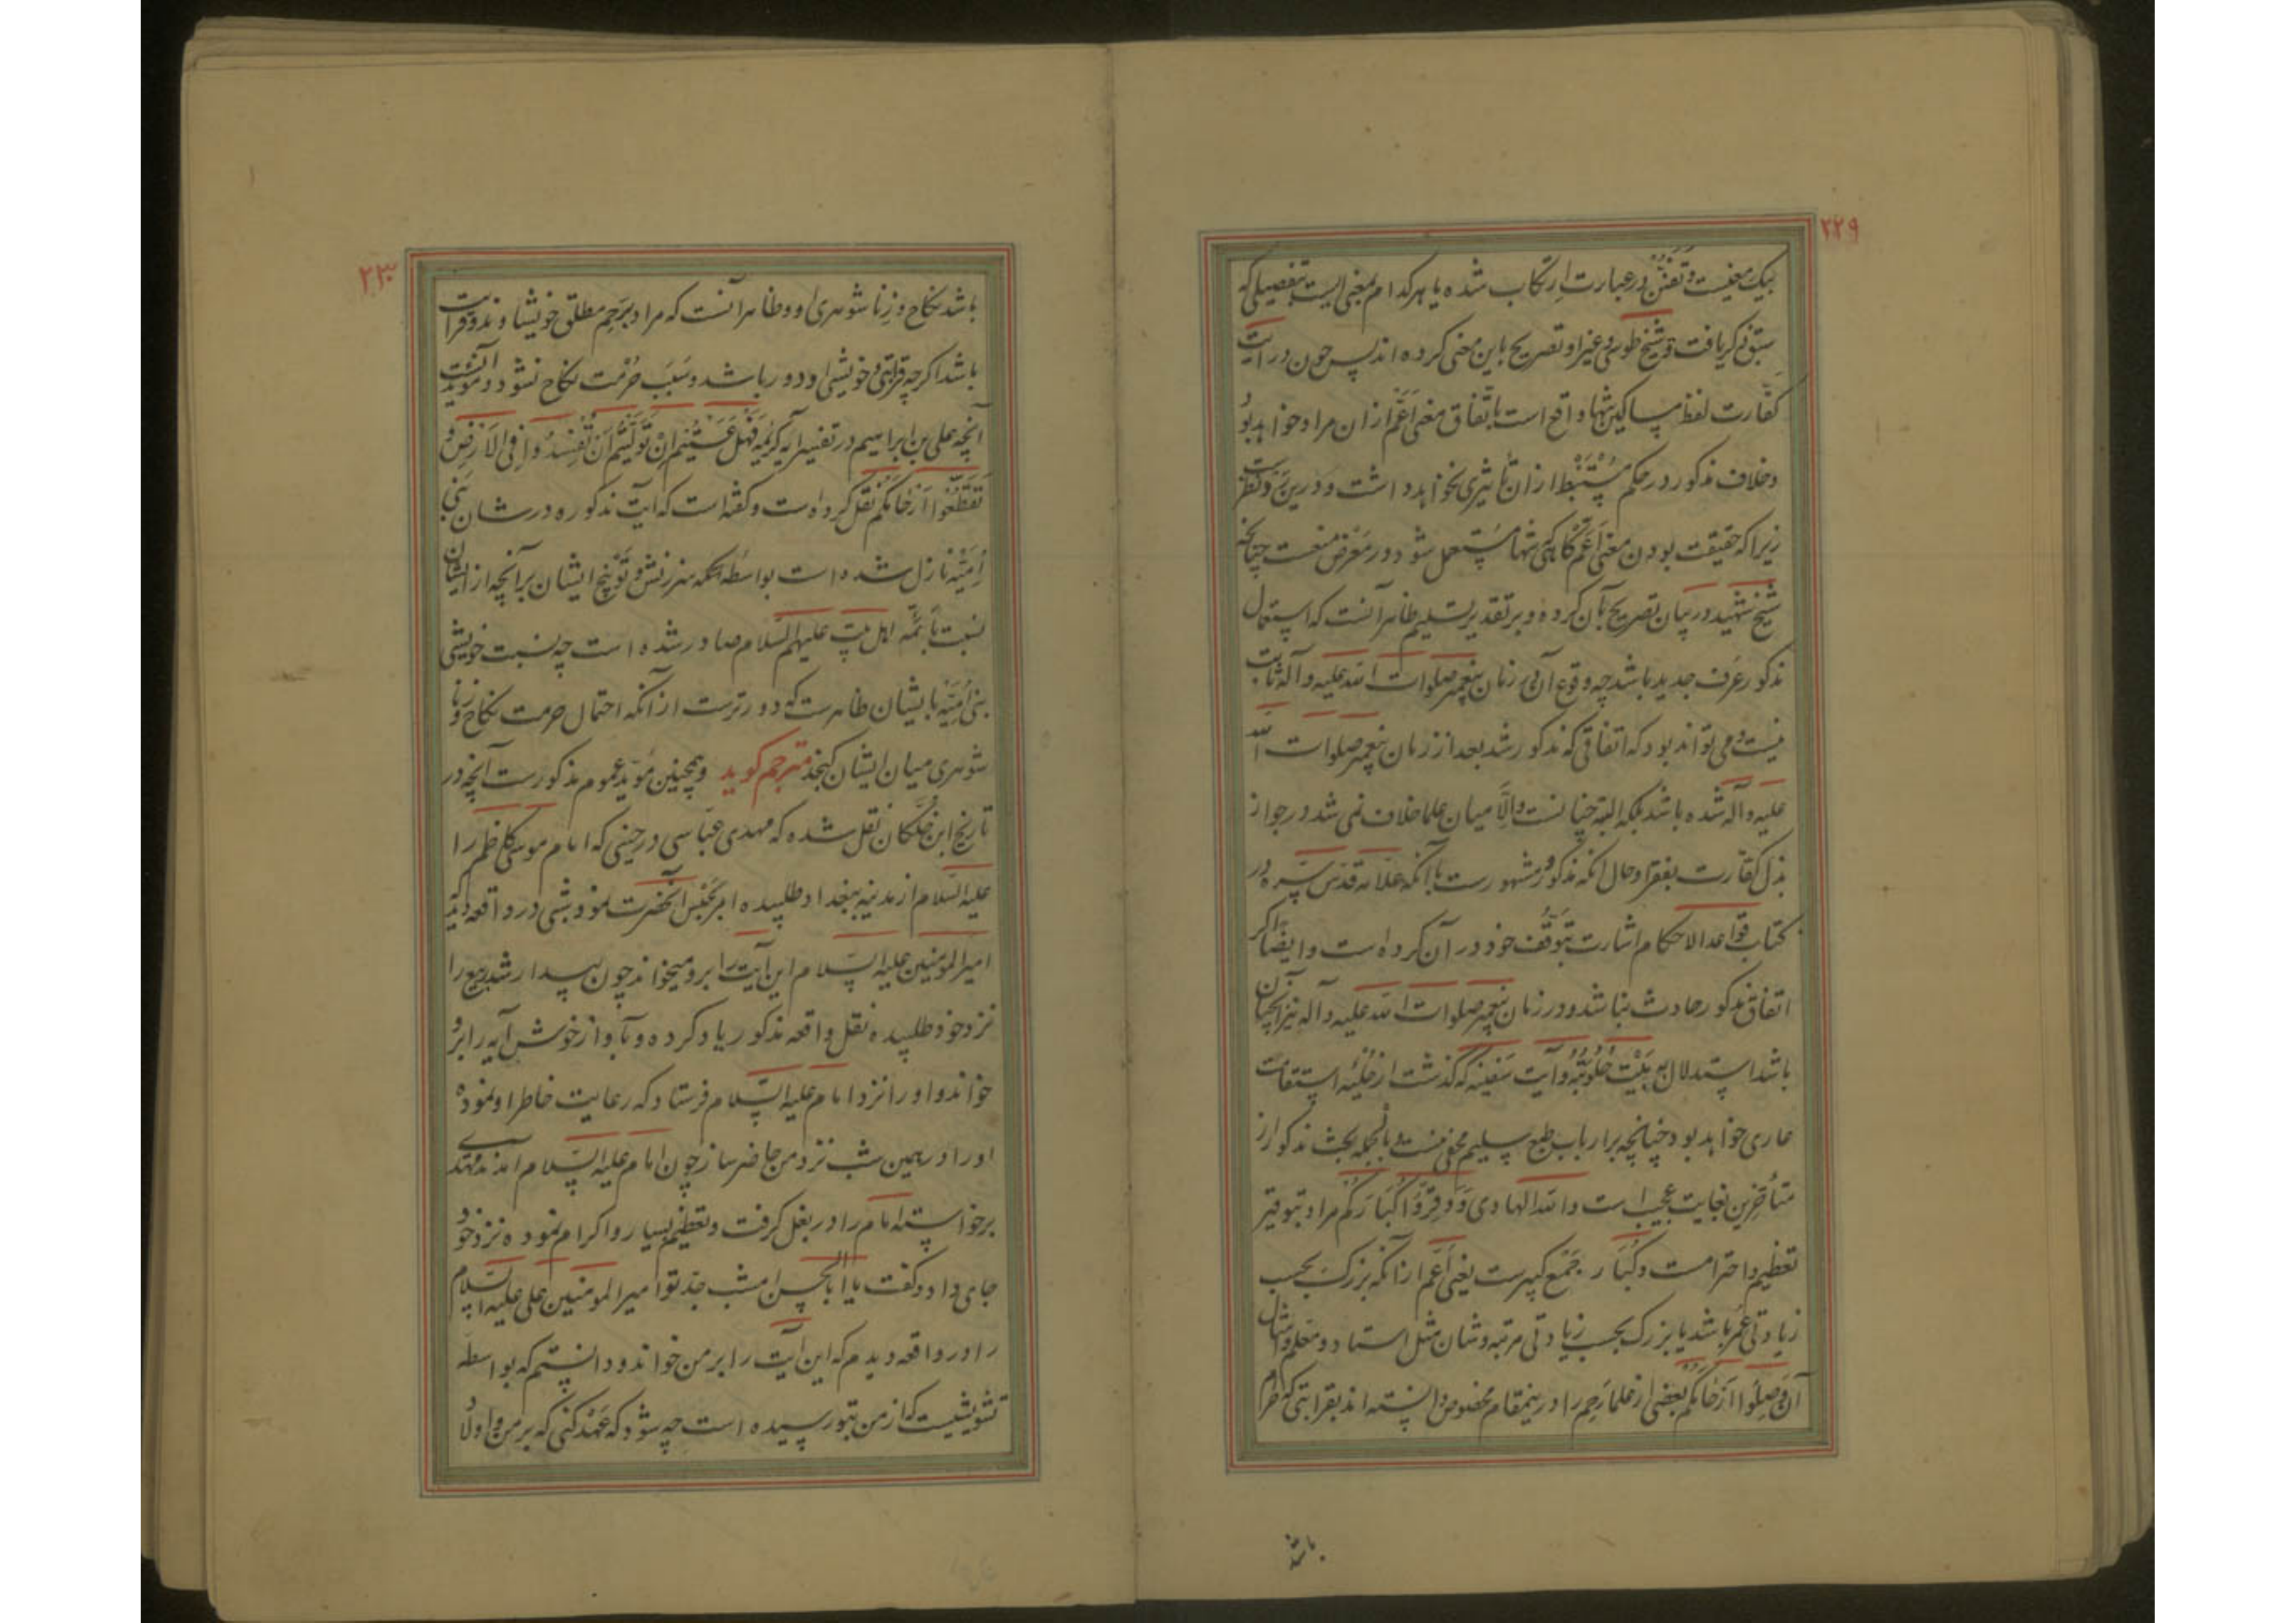 ۲۲۹
بیک معنیست و تفنن در عبارت ارتکاب شده یا هر کدام بمعنی ایست بتفصیلی که
سبق ذکر یافت و شیخ طوسی و غیر او تصریح باین معنی کرده اند پس چون در آیت
کفّارت لفظ مساکین تنها واقع است باتّفاق معنی اَعَمّ از ان مراد خواهد بود
و خلاف مذکور در حکم مُسْتَنْبَط از ان تأثیری نخواهد داشت و درین نظرست
زیرا که حقیقت بودن معنی اعم گاهی که تنها مستعمل شود در معرض منعست چنانچه
شیخ شهید در بیان تصریح بآن کرده و بر تقدیر تسلیم ظاهر آنست که استعمال
مذکور عُرف جدید باشد چه وقوع آن در زمان پیغمبر صلوات الله علیه و آله ثابت
نیست و می تواند بود که اتفاقی که مذکور شد بعد از زمان پیغمبر صلوات الله
علیه و آله شده باشد بلکه البته چنانست و الّا میان علما خلاف نمی شد در جواز
بذل کفّارت بفقرا و حال انکه مذکور و مشهورست با آنکه علّامه قدّس سرّه در
کتاب قواعد الاحکام اشارت بتوقّف خود در آن کرده است و ایضًا اگر
اتفاق مذکور حادث نباشد و در زمان پیغمبر صلوات الله علیه و آله نیز آنچنان
باشد استدلال به بَیْت حُلُوبَتُهُ و آیت سفینه که گذشت از حُلیه استقامت
عاری خواهد بود چنانچه بر ارباب طبع سلیم مخفی نیست و بالجمله بحث مذکور از
متأخّرین بغایت عجیب است والله الهادی وَ وَقِّرُوا کُبَارَکُمْ مراد بتوقیر
تعظیم و احترامست و کُبَار جمع کبیرست یعنی اَعَمّ از آنکه بزرگ بحسب
زیادتی عمر باشد یا بزرگ بحسب زیادتی مرتبه و شان مثل استاد و معلم و امثال
آن وَصِلُوا اَرْحَامَکُمْ بعضی از علما رَحِم را درینمقام مخصوص دانسته اند بقرابتی که حرام
باشد
۲۳۰
باشد نکاح و زناشوهری او و ظاهر آنست که مراد برَحِم مطلق خویشاوند و قرابت
باشد اگر چه قرابتی و خویشی او دور باشد و سَبَب حُرْمت نکاح نشود و مؤید آنست
آنچه علی بن ابراهیم در تفسیر آیه کریمه فَهَلْ عَسَیْتُمْ اِنْ تَوَلَّیْتُمْ اَنْ تُفْسِدُوا فِی الاَرْضِ وَ
تُقَطِّعُوا اَرْحَامَکُمْ نقل کرده است و گفته است که آیت مذکوره در شان بنی
اُمَیّه نازل شده است بواسطه آنکه سرزنش و توبیخ ایشان بر آنچه از ایشان
نسبت بائمّه اهل بیت علیهم السلام صادر شده است چه نسبت خویشی
بنی اُمَیّه بایشان ظاهرست که دورترست از آنکه احتمال حرمت نکاح و زنا
شوهری میان ایشان گنجد مترجم گوید و همچنین مؤید عموم مذکورست آنچه در
تاریخ ابن خلّکان نقل شده که مهدی عبّاسی در حینی که امام موسی کاظم را
علیه السّلام از مدینه ببغداد طلبیده امر بحَبْس آنحضرت نمود شبی در واقعه دید
امیر المومنین علیه السّلام این آیت را برو میخواند چون بیدار شد ربیع را
نزد خود طلبیده نقل واقعه مذکور یاد کرده و بآواز خوش آیه را برو
خواند و او را نزد امام علیه السّلام فرستاد که رعایت خاطر او نموده
او را در همین شب نزد من حاضر ساز چون امام علیه السّلام آمدند مهدی
برخواسته امام را در بغل گرفت و تعظیم بسیار و اکرام نموده نزد خود
جای داد و گفت یا ابا الحسن امشب جدّ تو امیر المومنین علی علیه السّلام
را در واقعه دیدم که این آیت را بر من خواند و دانستم که بواسطه
تشویشیست که از من بتو رسیده است چه شود که عَهْد کنی که بر من و اولاد